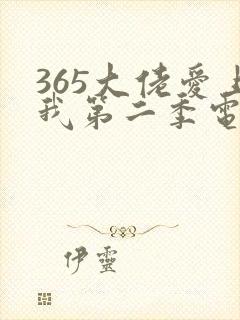 365大佬愛上
我第二季電
伊靈